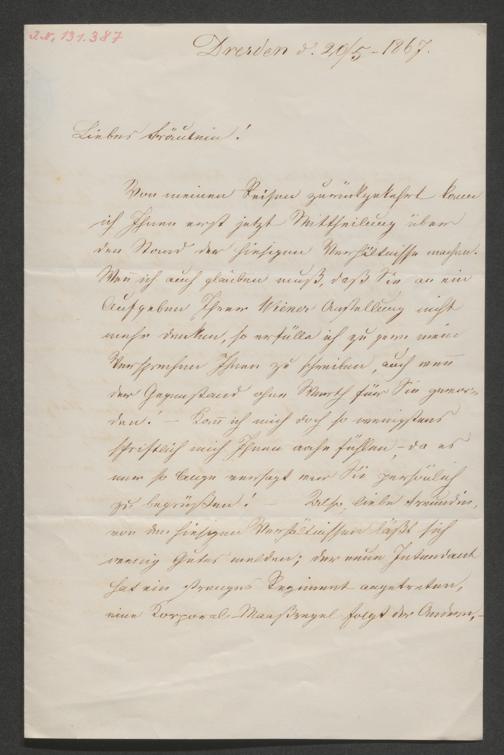 I.N. 131.387
Dresden d. 20/5 - 1867.
Liebes Fräulein!
Von meinen Reisen zurückgekehrt kann
ich Ihnen erst jetzt Mittheilung über
den Stand der hiesigen Verhältnisse machen.
Wenn ich auch glauben muß, daß Sie an ein
Aufgeben Ihrer Wiener Anstellung nicht
mehr denken, so erfülle ich zu gern mein
Versprechen Ihnen zu schreiben, auch wenn
der Gegenstand ohne Werth für Sie gewor-
den! – Kann ich mich doch so wenigstens
schriftlich mich Ihnen nahe fühlen – da es
mir so lange versagt war Sie persönlich
zu begrüßen! – Also, liebe Freundin,
von den hiesigen Verhältnissen läßt sich
wenig Gutes melden; der neue Intendant
hat ein strenges Regiment angetreten,
eine Korporal-Maaßregel folgt der Andern, –